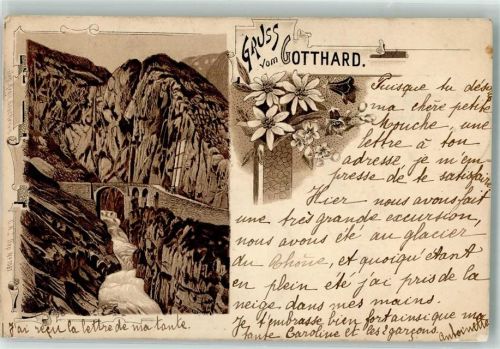 GRUSS
vom GOTTHARD.
Puisque tu dés
ma chère petite
Mouche, une
lettre à ton
adresse, je m'em
presse de te satisfaire
Hier nous avons fait
une très grande excursion,
nous avons été au glacier
du Rhône, et quoiqu'étant
en plein été j'ai pris de la
neige dans mes mains.
Je t'embrasse bien fort ainsi que ma
tante Caroline et les 2 garçons. Antoinette
J'ai reçu la lettre de ma tante.